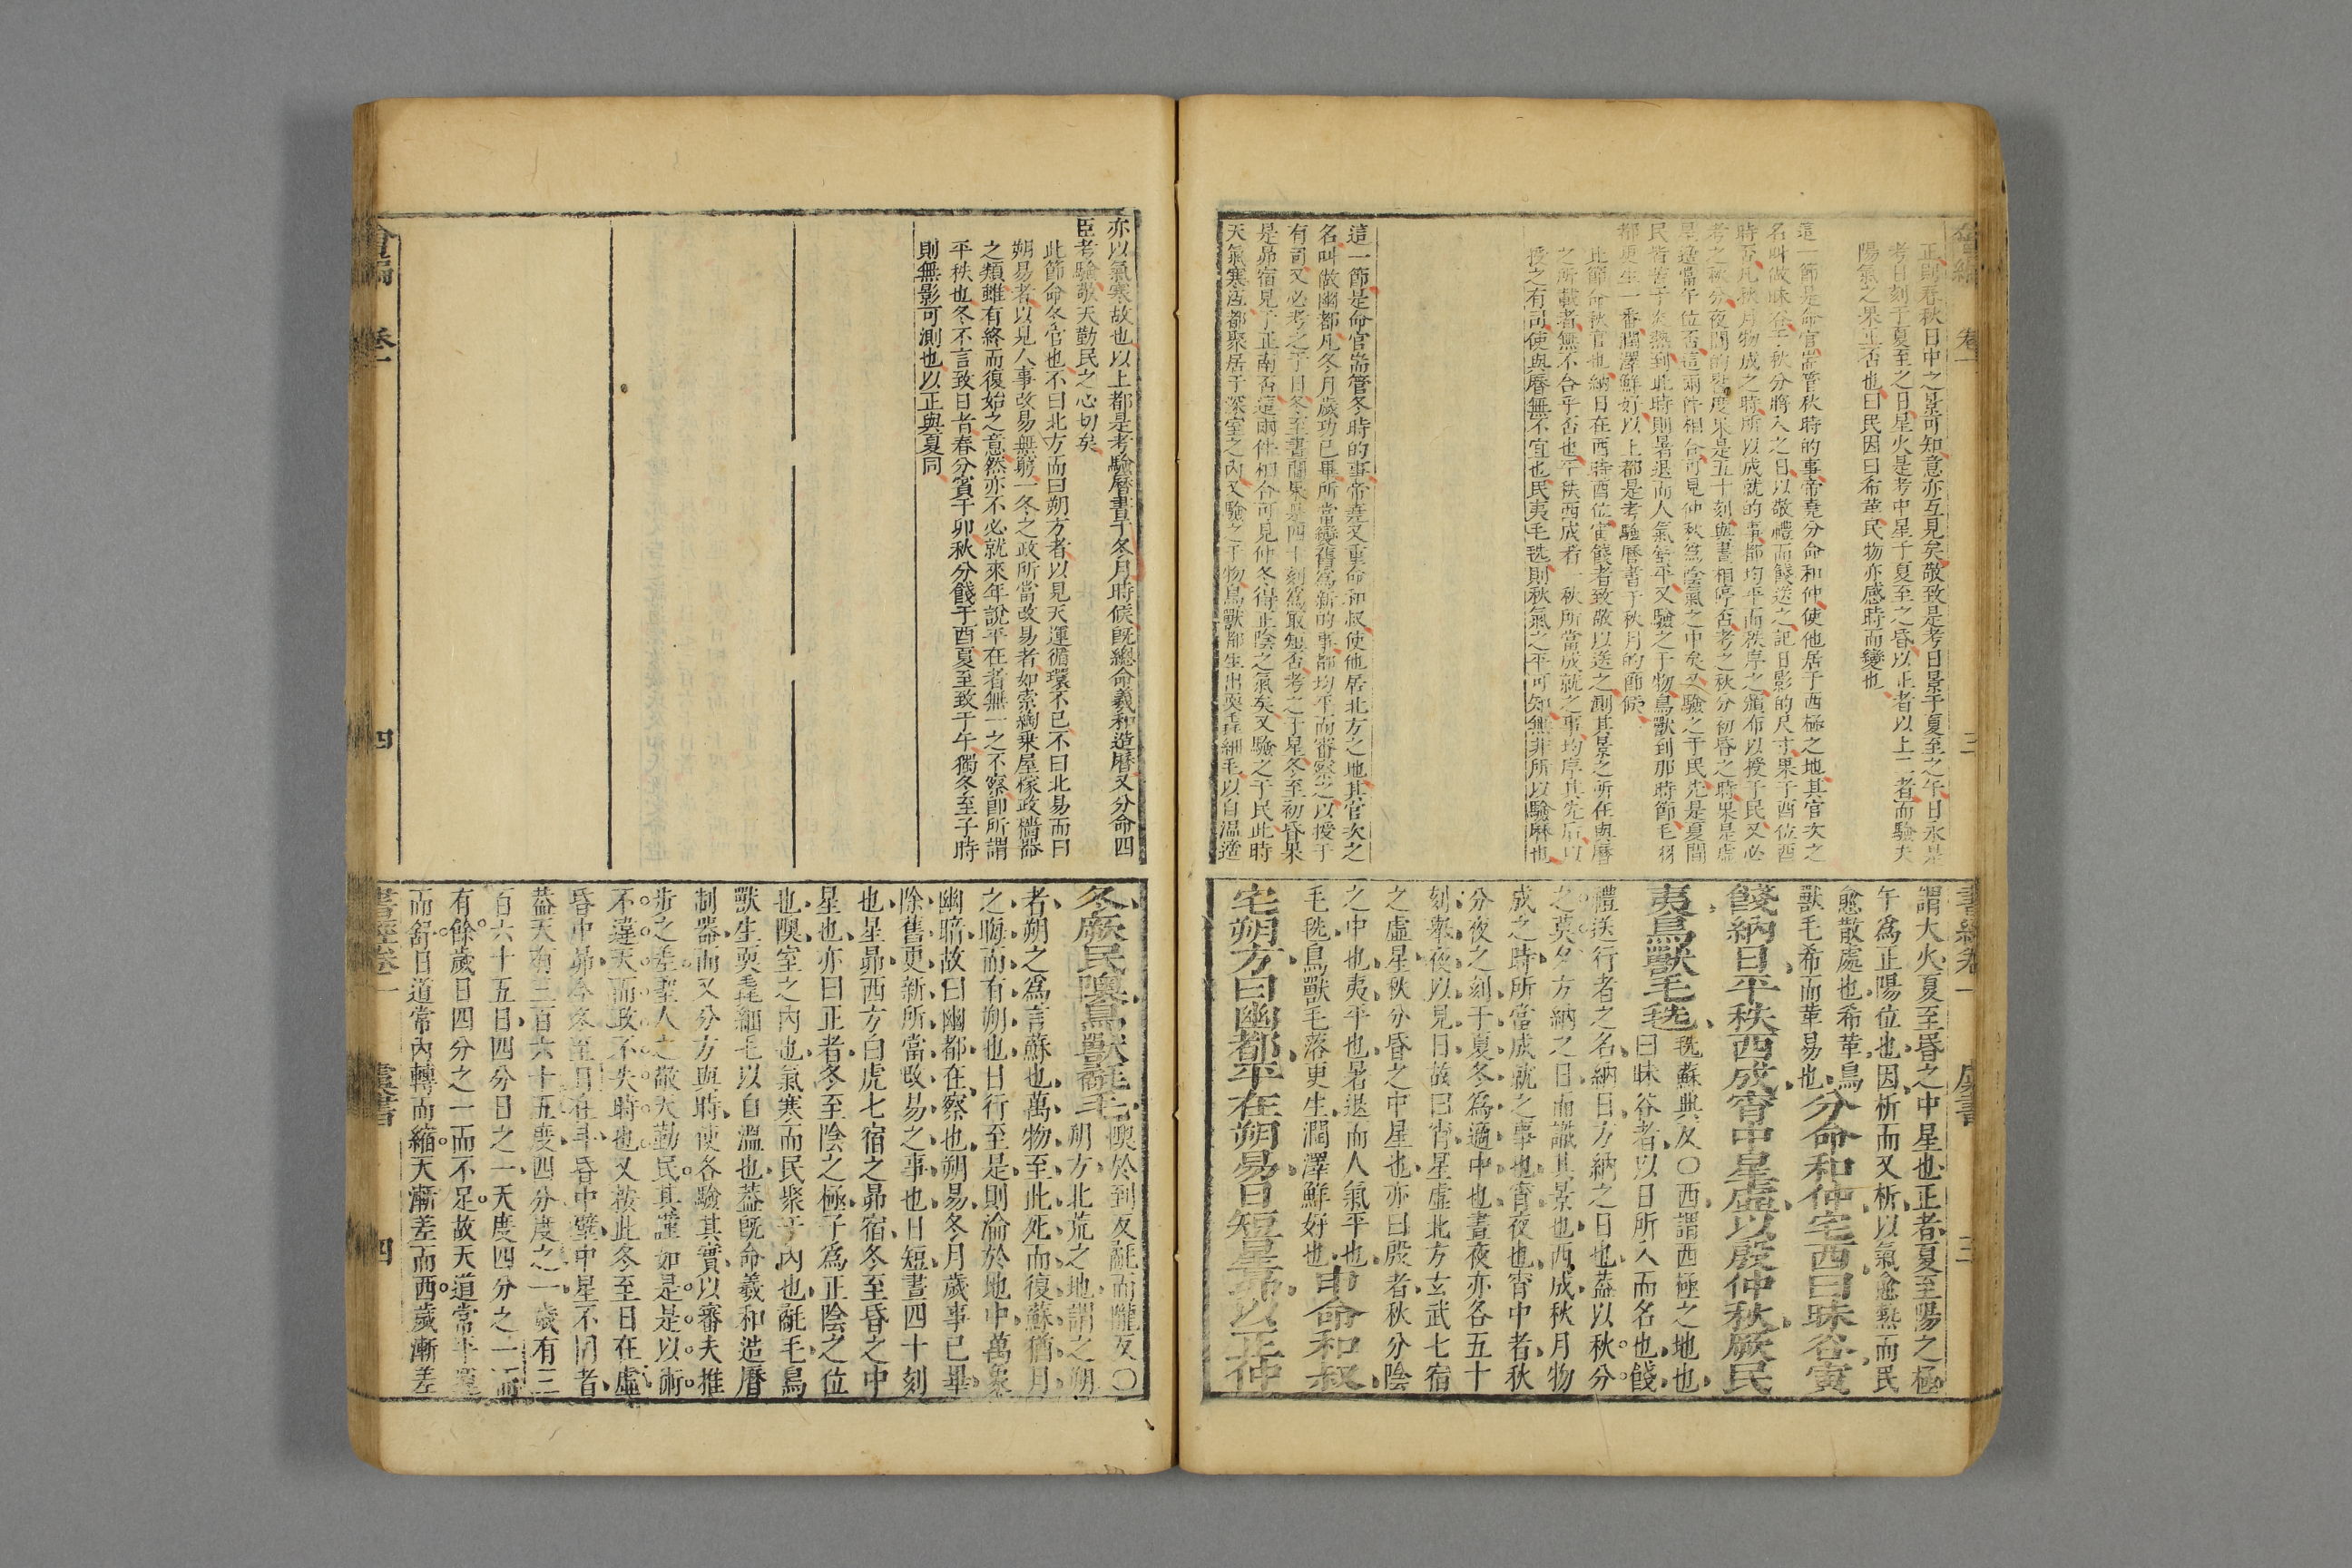 正則春秋日中之景可知意亦互見矣敬致是考日景于夏至之午日永是
考日刻于夏至之日星火是考中星于夏至之昏以正者以上二者而驗夫
陽氣之果正否也曰民因曰希革民物亦感時而變也
這一節是命官嵩管秋時的事帝堯分命和仲使他居于西極之地其官次之
名叫做昧谷于秋分將入之日以敬禮而餞送之記日影的尺寸果于酉位酉
時否凡秋月物成之時所以成就的事都均平而秩序之頒布以授于民又必
考之秋分夜間的晷度果是五十刻與晝相停否考之秋分初昏之時果是虛
星適當午位否這兩件相合可見仲秋為陰氣之中矣又驗之于民先是夏間
民皆苦于炎熱到此時則暑退而人氣舒平又驗之于物鳥獸到那時節毛羽
都更生一番潤澤鮮好以上都是考驗曆書于秋月的節候
此節命秋官也納日在酉時酉位寅餞者致敬以送之測其景之所在與曆
之所載者無不合乎否也平秩西成者一秋所當成就之事均序其先后以
授之有司使與曆無不宜也民夷毛毨則秋氣之平可知無非所以驗曆也
這一節是命官耑管冬時的事帝堯又重命和叔使他居北方之地其官次之
名叫做幽都凡冬月歲功已畢所當變舊為新的事都均平而審察之以授于
有司又必考之于日冬至晝間果是四十刻為最短否考之于星冬至初昏果
是昴宿見于正南否這兩件相合可見仲冬得正陰之氣矣又驗之于民此時
天氣寒冱都聚居于深室之內又驗之于物鳥獸都生出耎毳細毛以自温這
謂大火夏至昏之中星也正者夏至陽之極
午為正陽位也因析而又析以氣愈熱而民
愈散處也希革鳥
獸毛希而革易也分命和仲宅西曰昧谷寅
餞納日平秩西成宵中星虛以殷仲秋厥民
夷鳥獸毛毨毨蘇典反○西謂西極之地也
曰昧谷者以日所入而名也餞
禮送行者之名納日方納之日也蓋以秋分
之莫夕方納之日而識其景也西成秋月物
成之時所當成就之事也宵夜也宵中者秋
分夜之刻于夏冬為適中也晝夜亦各五十
刻舉夜以見日故曰宵星虛北方玄武七宿
之虛星秋分昏之中星也亦曰殷者秋分陰
之中也夷平也暑退而人氣平也
毛毨鳥獸毛落更生潤澤鮮好也申命和叔
宅朔方曰幽都平在朔易日短星昴以正仲
書經卷一 虞書 三
亦以氣寒故也以上都是考驗曆書于冬月時候既總命羲和造曆又分命四
臣考驗敬天勤民之心切矣
此節命冬官也不曰北方而曰朔方者以見天運循環不已不曰北易而曰
朔易者以見人事改易無窮一冬之政所當改易者如索綯乗屋稼政穡器
之類雖有終而復始之意然亦不必就來年說平在者無一之不察卽所謂
平秩也冬不言致日者春分賓于卯秋分餞于酉夏至致于午獨冬至子時
則無影可測也以正與夏同
冬厥民隩鳥獸氄毛隩於到反氄而隴反○
朔方北荒之地謂之朔
者朔之為言蘇也萬物至此死而復蘇猶月
之晦而有朔也日行至是則淪於地中萬象
幽暗故曰幽都在察也朔易冬月歲事已畢
除舊更新所當改易之事也日短晝四十刻
也星昴西方白虎七宿之昴宿冬至昏之中
星也亦曰正者冬至陰之極子為正陰之位
也隩室之內也氣寒而民聚于內也氄毛鳥
獸生耎毳細毛以自溫也蓋既命羲和造曆
制器而又分方與時使各驗其實以審夫推
步之差聖人之敬天勤民其謹如是是以術
不違天而政不失時也又按此冬至日在虛
昏中昴今冬至日在斗昏中壁中星不同者
蓋天有三百六十五度四分度之一歲有三
百六十五日四分日之一天度四分之一而
有餘歲日四分之一而不足故天道常平運
而舒日道常內轉而縮天漸差而西歲漸差
卷一 四
書經卷一 虞書 四